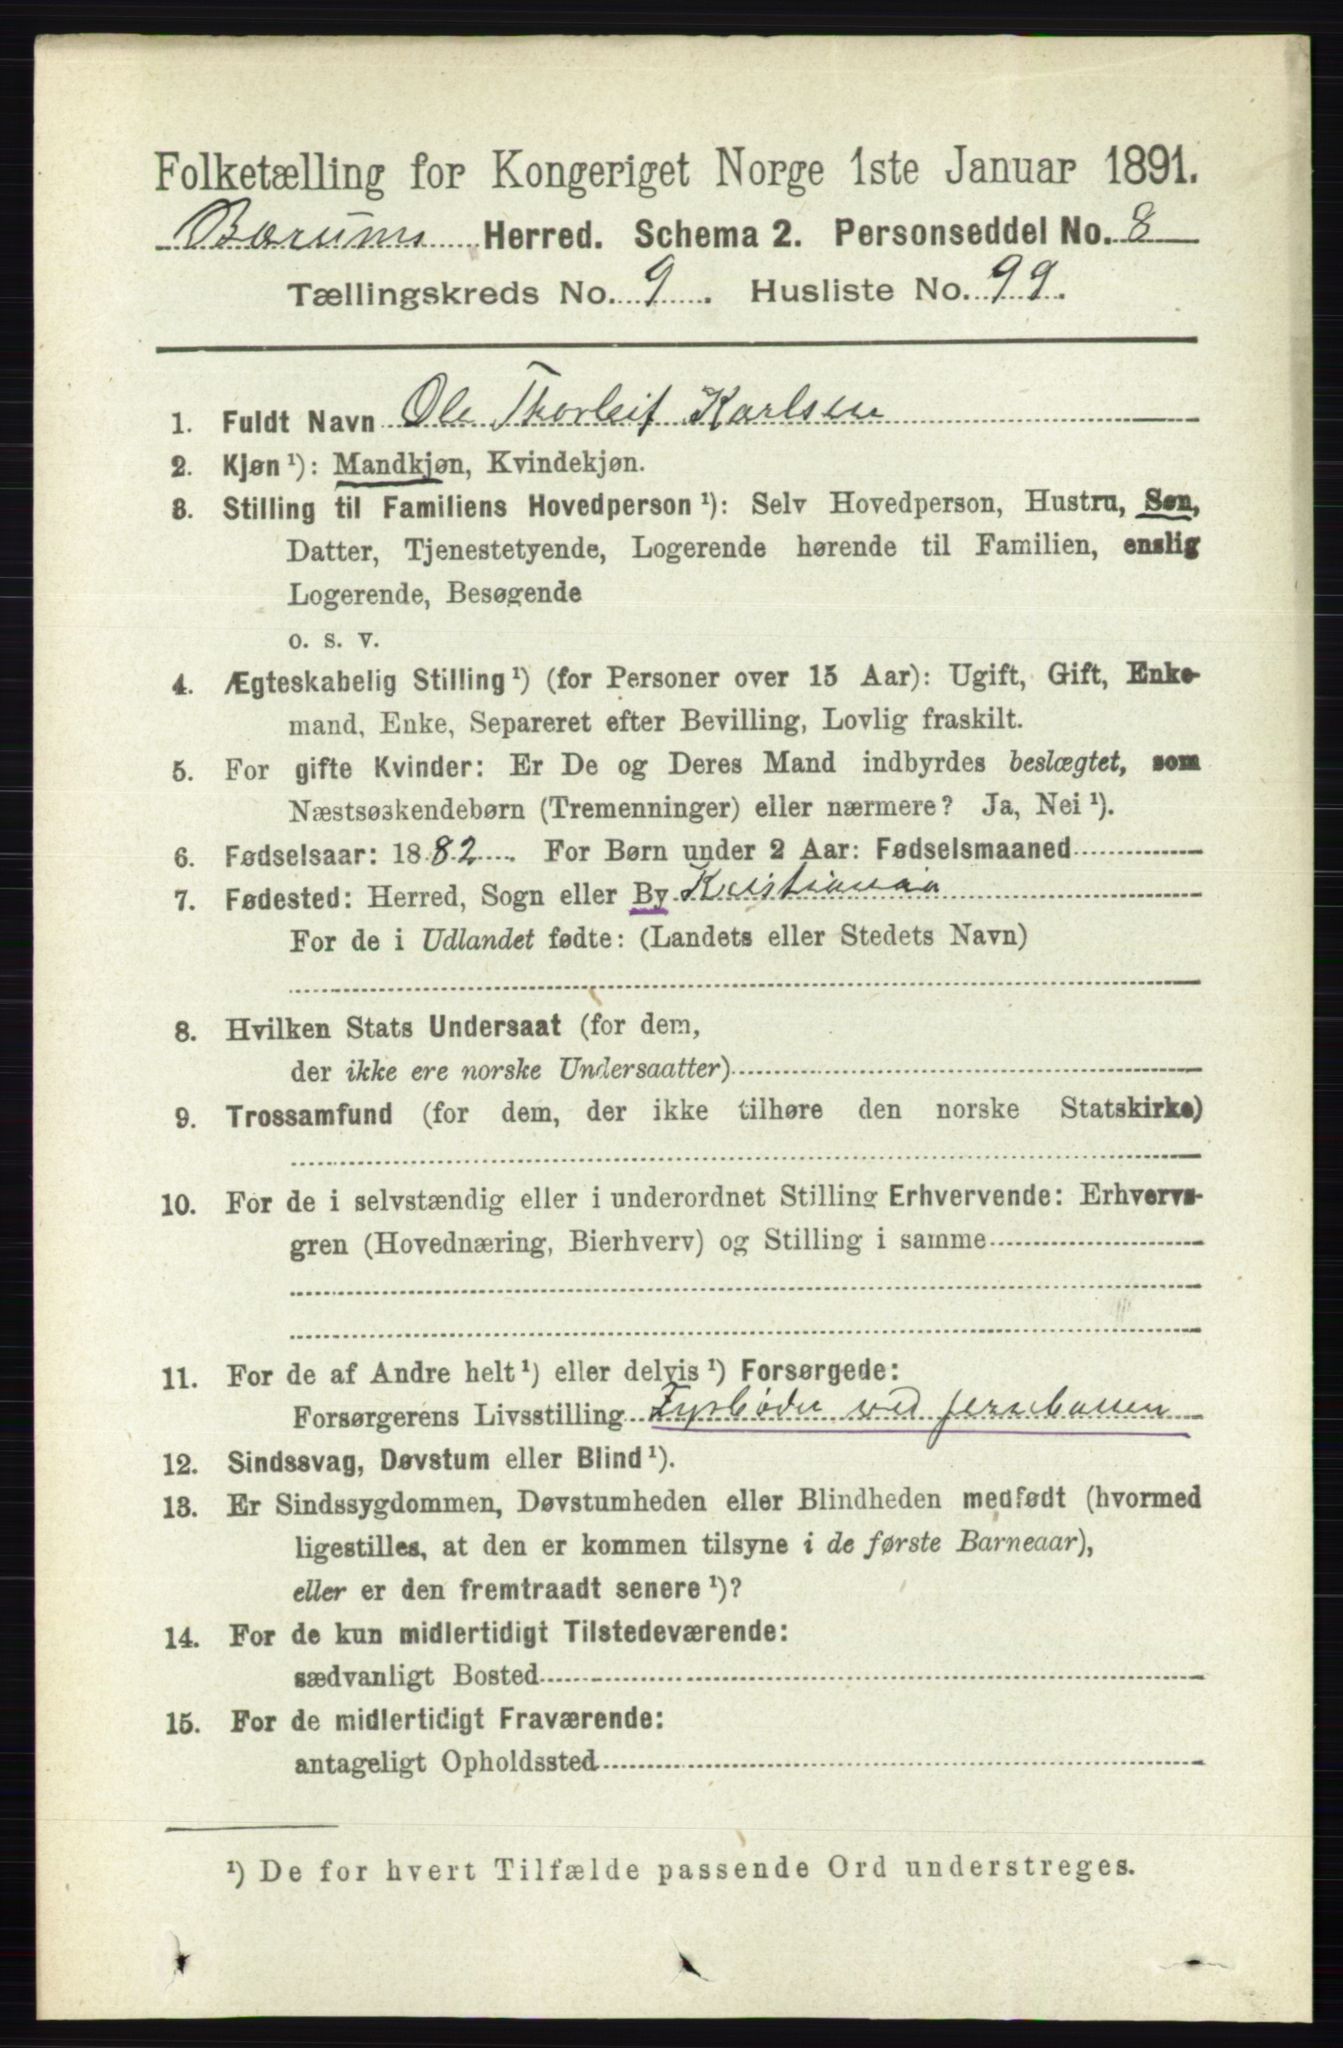 Folketælling for Kongeriget Norge 1ste Januar 1891.
Bærums Herred. Schema 2. Personseddel No. 8
Tællingskreds No. 9. Husliste No. 99.
1. Fuldt Navn Ole Thorleif Karlsen
2. Kjøn ¹): Mandkjøn, Kvindekjøn.
3. Stilling til Familiens Hovedperson ¹): Selv Hovedperson, Hustru, Søn,
Datter, Tjenestetyende, Logerende hørende til Familien, enslig
Logerende, Besøgende
o. s. v.
4. Ægteskabelig Stilling ¹) (for Personer over 15 Aar): Ugift, Gift, Enke-
mand, Enke, Separeret efter Bevilling, Lovlig fraskilt.
5. For gifte Kvinder: Er De og Deres Mand indbyrdes beslægtet, som
Næstsøskendebørn (Tremenninger) eller nærmere? Ja, Nei ¹).
6. Fødselsaar: 1882. For Børn under 2 Aar: Fødselsmaaned
7. Fødested: Herred, Sogn eller By Kristiania
For de i Udlandet fødte: (Landets eller Stedets Navn)
8. Hvilken Stats Undersaat (for dem,
der ikke ere norske Undersaatter)
9. Trossamfund (for dem, der ikke tilhøre den norske Statskirke)
10. For de i selvstændig eller i underordnet Stilling Erhvervende: Erhvervs-
gren (Hovednæring, Bierhverv) og Stilling i samme
11. For de af Andre helt ¹) eller delvis ¹) Forsørgede:
Forsørgerens Livsstilling Fyrbøder ved jernbanen
12. Sindssvag, Døvstum eller Blind ¹).
13. Er Sindssygdommen, Døvstumheden eller Blindheden medfødt (hvormed
ligestilles, at den er kommen tilsyne i de første Barneaar),
eller er den fremtraadt senere ¹)?
14. For de kun midlertidigt Tilstedeværende:
sædvanligt Bosted
15. For de midlertidigt Fraværende:
antageligt Opholdssted
¹) De for hvert Tilfælde passende Ord understreges.